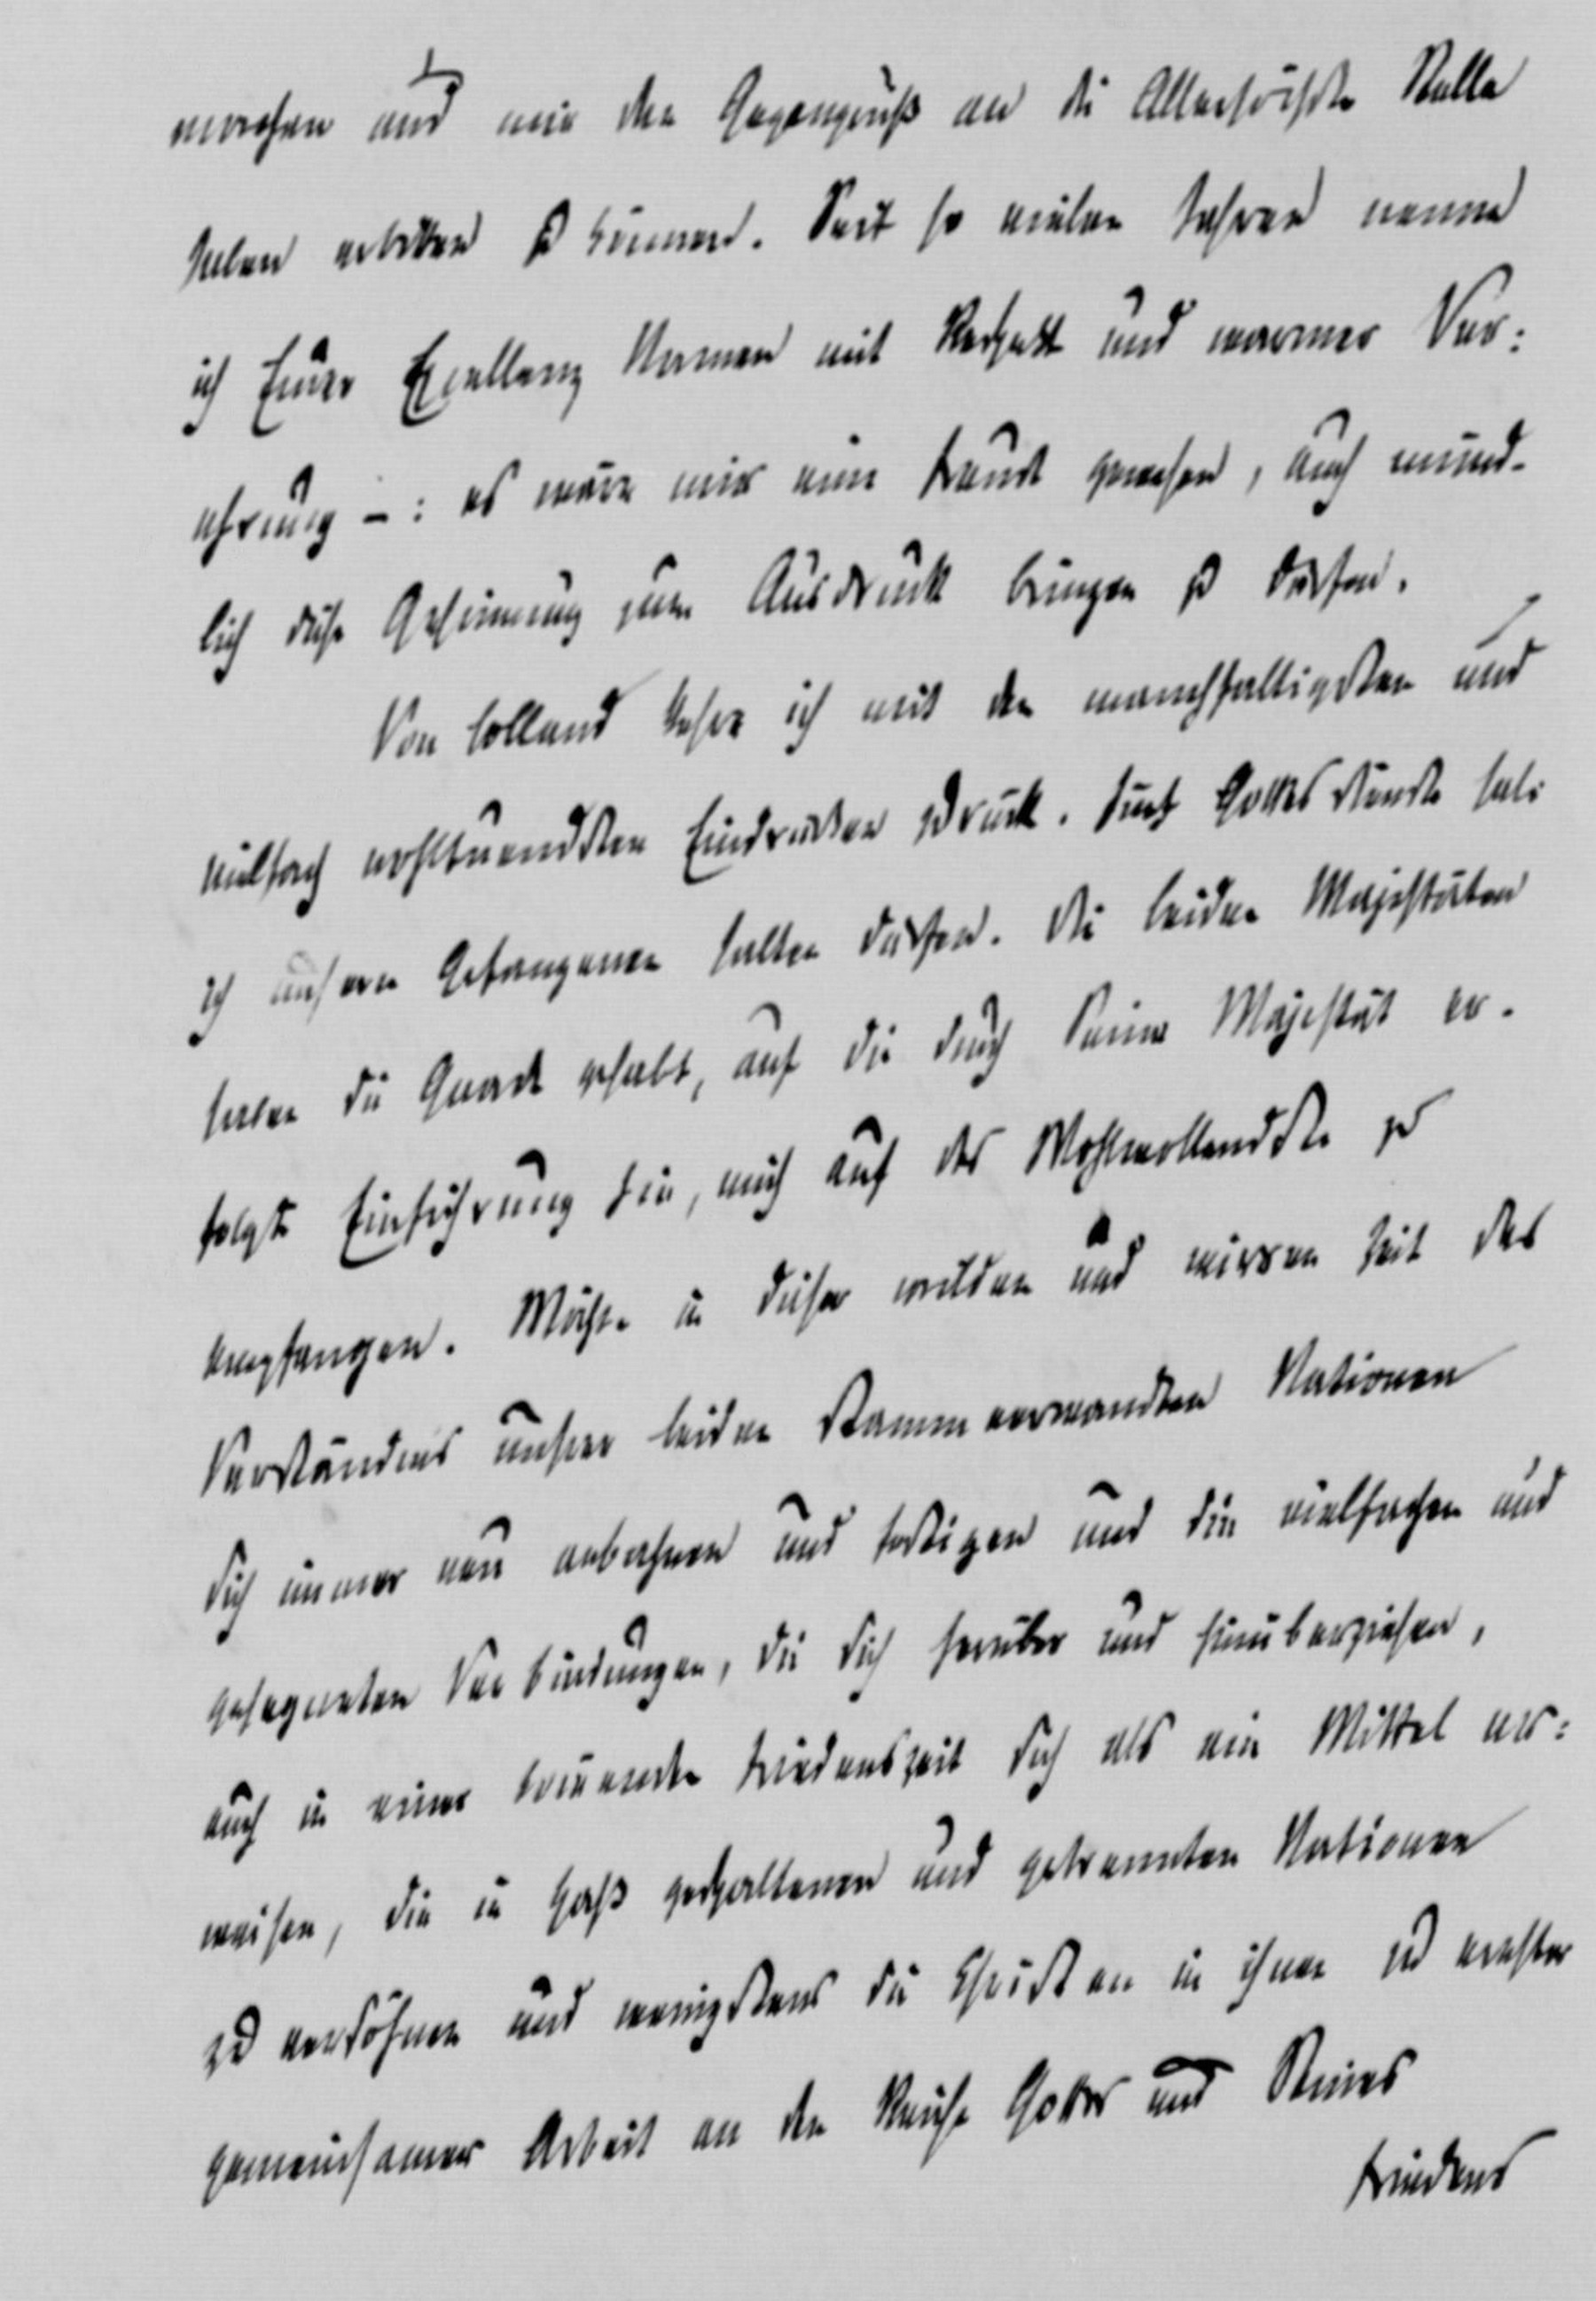 machen und mir den Gegengruß an die Allerhöchste Stelle
selber erbitten zu können. Seit so vielen Jahren nenne
ich Eurer Excellenz Namen mit Respekt und warmer Ver:
ehrung –: es wäre mir eine Freude gewesen, auch münd-
lich diese Gesinnung zum Ausdruck bringen zu dürfen.
Von Holland kehre ich mit den manchfaltigsten und
vielfach wohltuendsten Eindrücken zurück. Fünf Gottesdienste habe
ich unseren Gefangenen halten dürfen. Die beiden Majestäten
haben die Gnade gehabt, auf die durch Seine Majestät er-
folgte Einführung hin, mich auf das Wohlwollendste zu
empfangen. Möchte in dieser wilden und wirren Zeit das
Verständnis unserer beiden stammverwandten Nationen
sich immer neu anbahnen und festigen und die vielfachen und
gesegneten Verbindungen, die sich herüber und hinüberziehen,
auch in einer kommenden Friedenszeit sich als ein Mittel er:
weisen, die in Haß gespaltenen und getrennten Nationen
zu versöhnen und wenigstens die Christen in ihnen zu ernster
gemeinsamer Arbeit an dem Reiche Gottes und Seines
Friedens